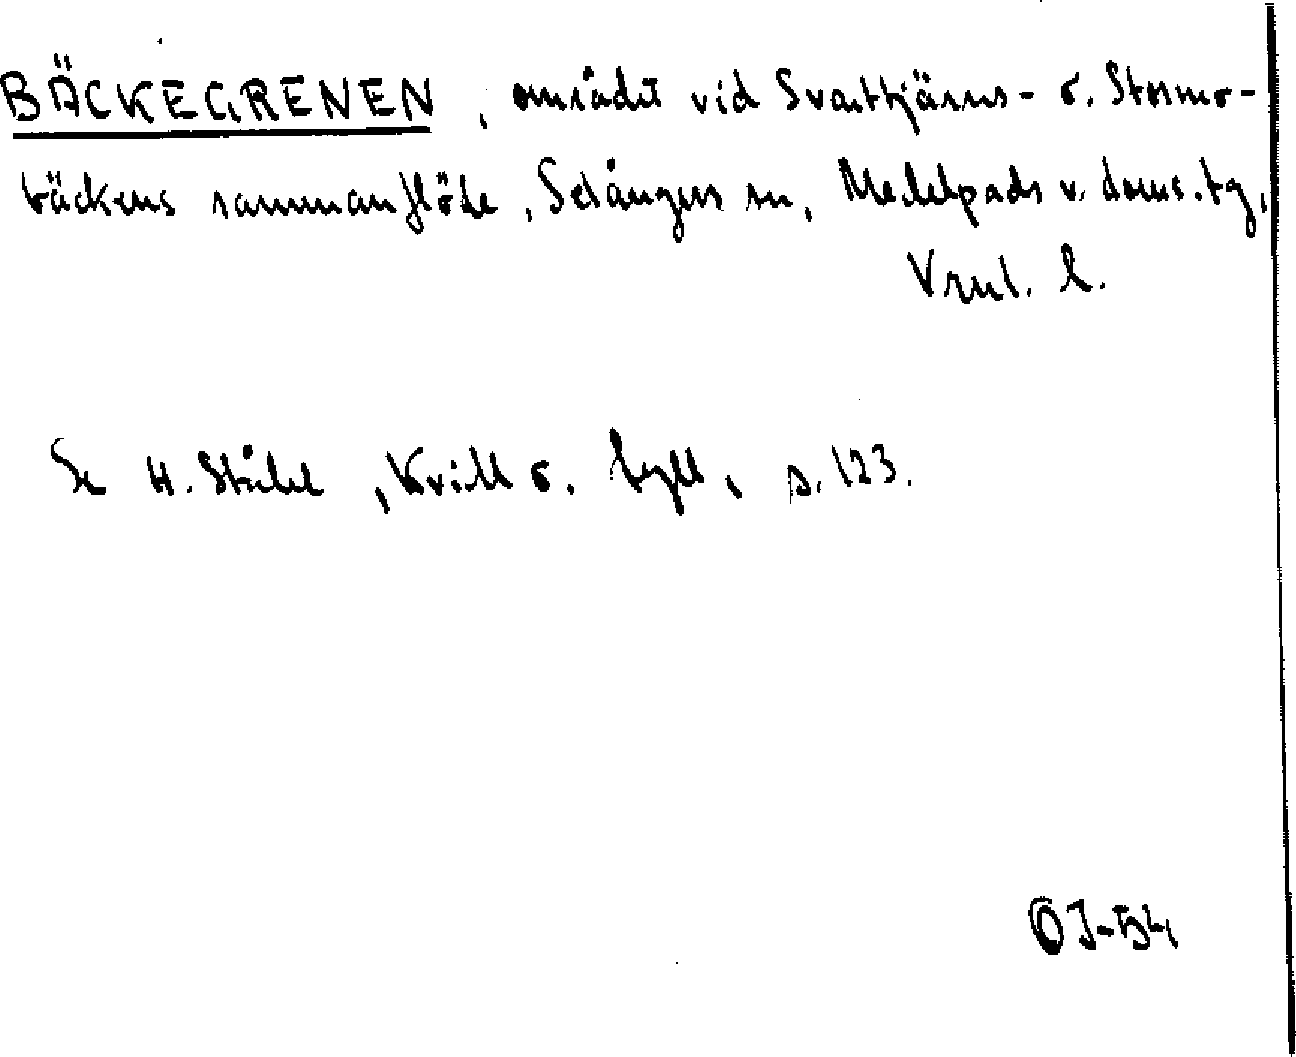 BÄCKEGRENEN, området vid Svarttjärns- o. Stormo-
bäckens sammanflöde, Selångers sn, Medelpads v. doms.tg,
Vrnl. l.
Se H. Ståhl, Kvill o. tyll, s. 123.
OJ-54